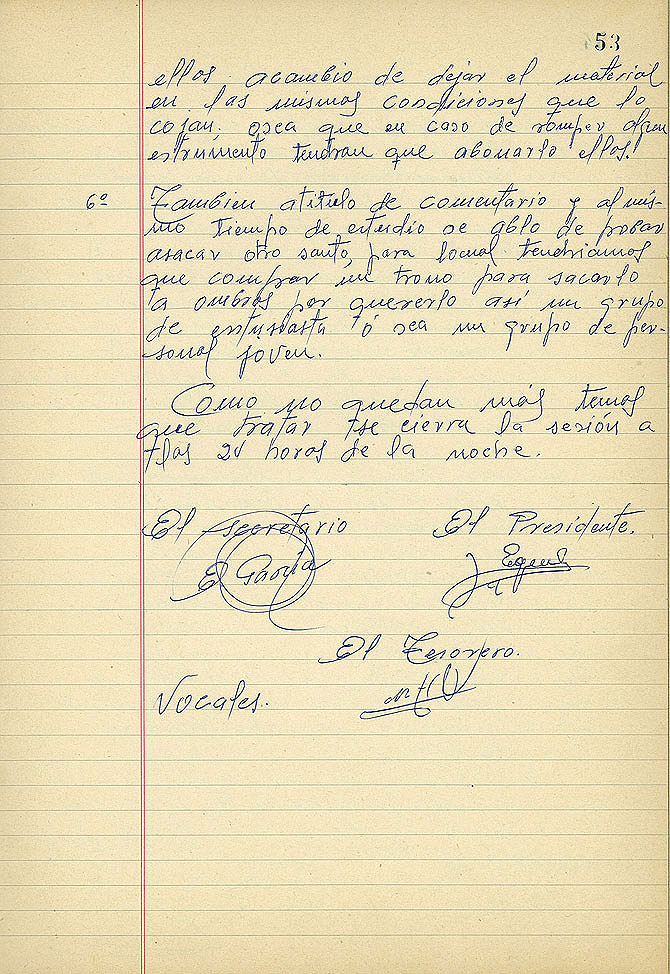 53
ellos acambio de dejar el material
en las mismas condiciones que lo
cojan. osea que en caso de romper algun
estrumento tendran que abonarlo ellos.
6º Tambien atitulo de comentario y al mis-
mo tiempo de estudio se ablo de probar
asacar otro santo, para locual tendriamos
que comprar un trono para sacarlo
a ombros por quererlo así un grupo
de entusiasta ó sea un grupo de per-
sonal joven.
Como no quedan más temas
que tratar se cierra la sesión a
las de la noche.
El secretario El Presidente.
E Garcia
El Tesorero.
Vocales.